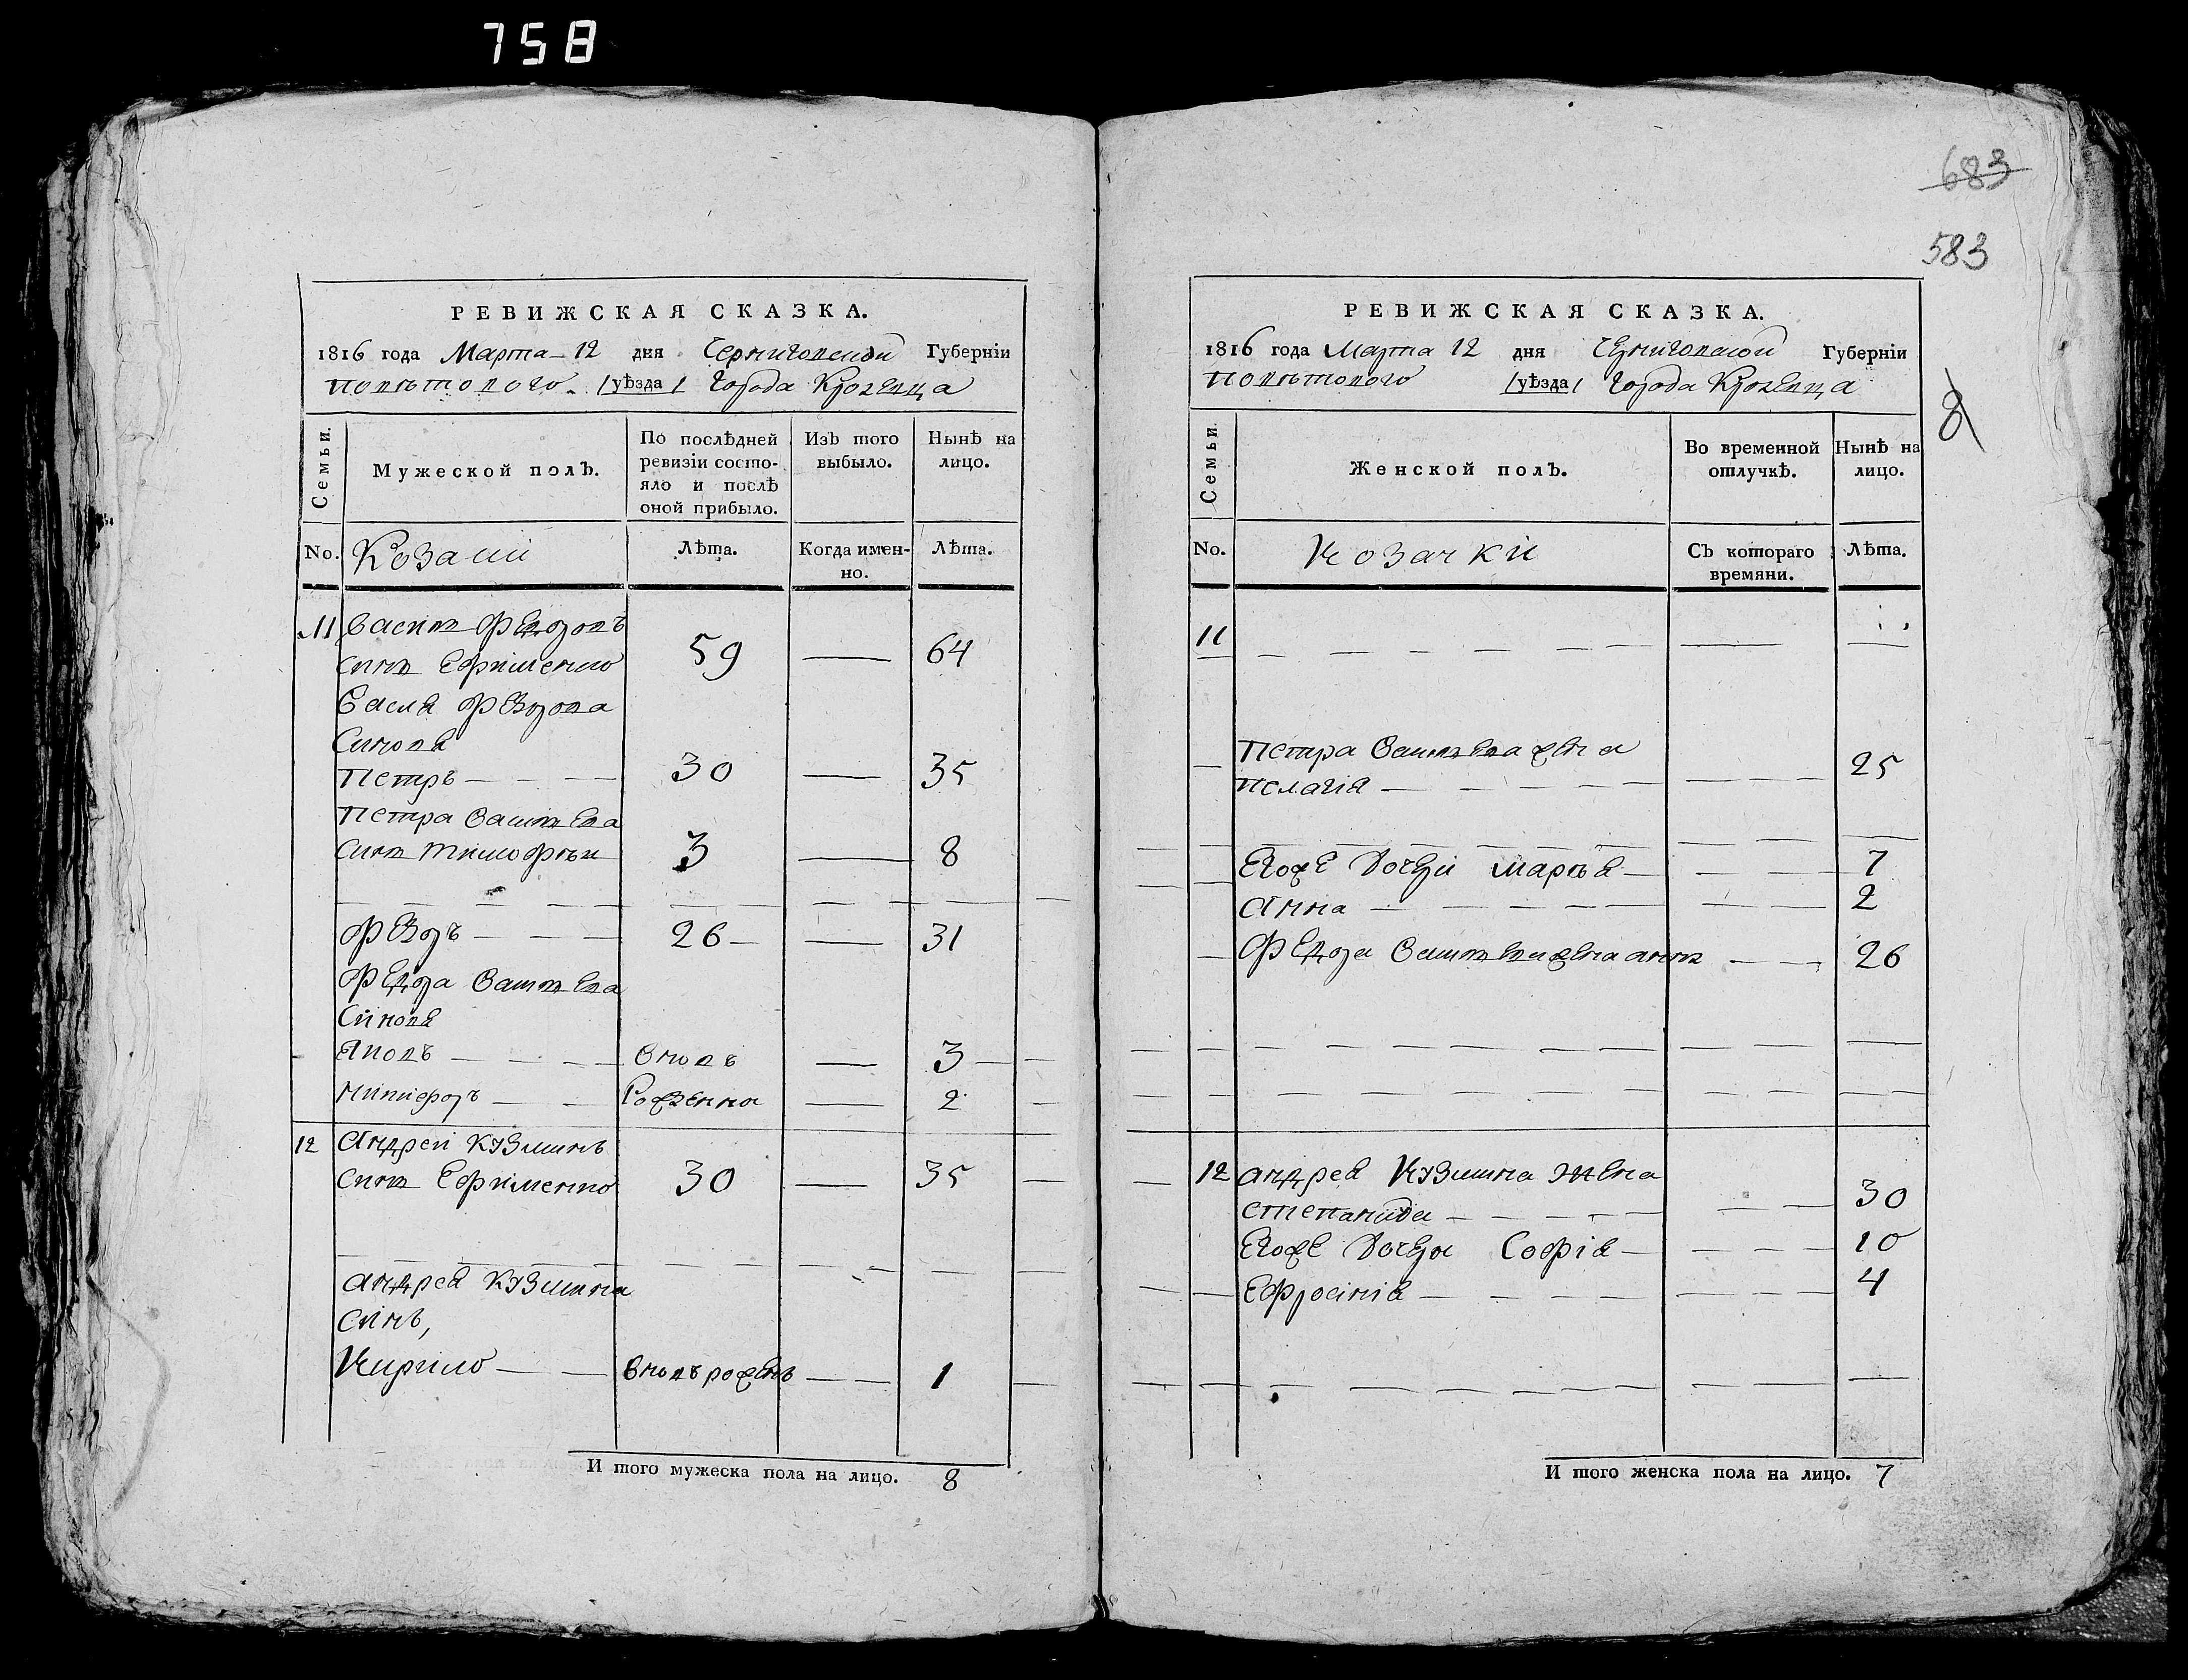 758
РЕВИЖСКАЯ СКАЗКА.
1816 года Марта 12 дня Черниговской Губерніи
повѣтового /уѣзда/ города Кролевца
Семьи.
Мужеской полъ.
По послѣдней ревизіи состояло и послѣ оной прибыло.
Изъ того выбыло.
Нынѣ на лицо.
No. Козаки
Лѣта.
Когда именно.
Лѣта.
11 Василъ Федоровъ
синъ Ефименко 59 — 64
Василя Федорова
Синовя
Петръ — — — 30 — 35
Петра Василева
Синъ Тимофѣи 3 — 8
Федоръ — — — 26 — — 31
Федора Василева
Синовя
Яковъ — — — вновь — 3
Никифоръ — — Рожденна — 2
12 Андрей Кузминъ
синъ Ефименко 30 — 35
Андрея Кузмина
Синъ,
Кирило — — вновь рожденъ — — 1
И того мужеска пола на лицо. 8
683
583
РЕВИЖСКАЯ СКАЗКА.
1816 года Марта 12 дня Черниговской Губерніи
повѣтового /уѣзда/ города Кролевца
8
Семьи.
Женской полъ.
Во временной отлучкѣ.
Нынѣ на лицо.
No. Козачки
Съ котораго времяни.
Лѣта.
11
Петра Василева жена
Пелагія — — — — — 25
Егоже дочери Маръя — 7
Анна — — — — 2
Федора Василева жена анна — — 26
12 Андрея Кузмина жена
Степанида — — — — 30
Егоже дочери Софія — 10
Ефросинія — — — — 4
И того женска пола на лицо. 7